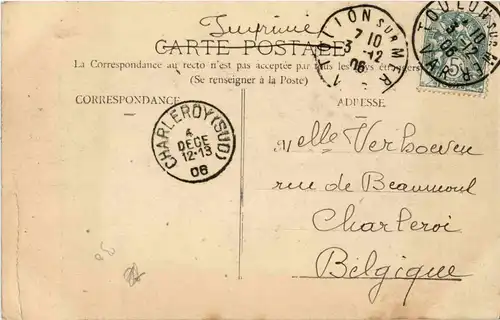 Imprimé
CARTE POSTALE
La Correspondance au recto n'est pas acceptée par tous les pays étrangers
(Se renseigner à la Poste)
CORRESPONDANCE
ADRESSE
TOULON SUR MER
VAR
7 10
3 -12
06
TOULON SUR MER
VAR
7 10
3 -12
06
5
CHARLEROY (SUD)
4
DECE
12-13
06
Melle Verhoeven
rue de Beaumond
Charleroi
Belgique